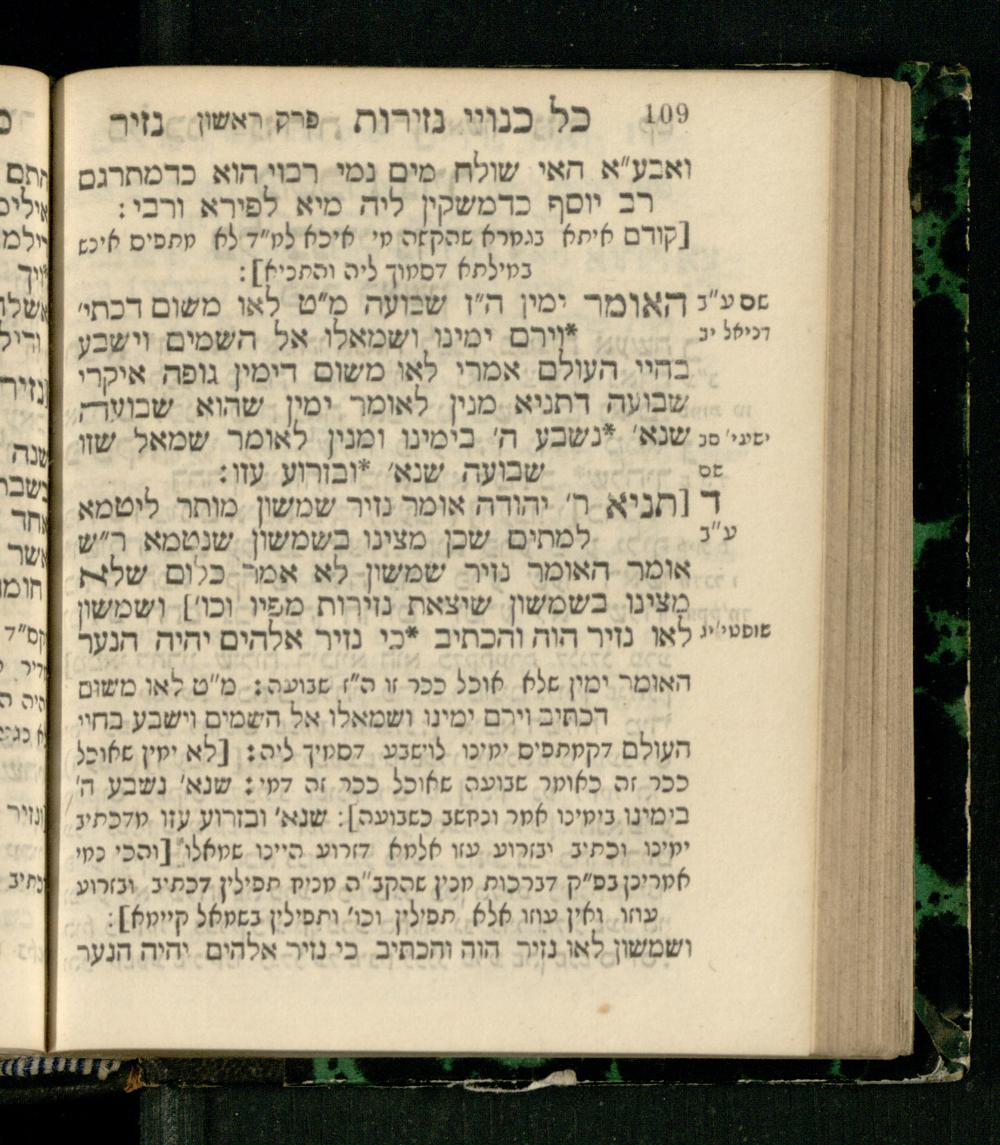 109 כל כנויי נזירות פרק ראשון נזיר
ואבע"א האי שולח מים נמי רבוי הוא כדמתרגם
רב יוסף כדמשקין ליה מיא לפירא ורבי:
[קודם איתא בגמרא שהקשה מי איכא למ"ד לא מתפיס איניש
במילתא דסמוך ליה והתניא]:
שם ע"ב האומר ימין ה"ז שבועה מ"ט לאו משום דכתי'
דניאל יב *וירם ימינו ושמאלו אל השמים וישבע
בחיי העולם אמרי לאו משום דימין גופה איקרי
שבועה דתניא מנין לאומר ימין שהוא שבועה
ישעי' סב שנא' *נשבע ה' בימינו ומנין לאומר שמאל שזו
שם שבועה שנא' *ובזרוע עזו:
ד [תניא ר' יהודה אומר נזיר שמשון מותר ליטמא
ע"ב למתים שכן מצינו בשמשון שנטמא ר"ש
אומר האומר נזיר שמשון לא אמר כלום שלא
מצינו בשמשון שיצאת נזירות מפיו וכו'] ושמשון
שופטי' יג לאו נזיר הוה והכתיב *כי נזיר אלהים יהיה הנער
האומר ימין שלא אוכל ככר זו ה"ז שבועה: מ"ט לאו משום
דכתיב וירם ימינו ושמאלו אל השמים וישבע בחיי
העולם דקמתפיס ימינו לוישבע דסמיך ליה: [לא ימין שאוכל
ככר זה כאומר שבועה שאוכל ככר זה דמי: שנא' נשבע ה'
בימינו בימינו אמר ונחשב כשבועה]: שנא' ובזרוע עזו מדכתיב
ימינו וכתיב ובזרוע עזו אלמא דזרוע היינו שמאלו [והכי נמי
אמרינן בפ"ק דברכות מנין שהקב"ה מניח תפילין דכתיב ובזרוע
עוזו ואין עוזו אלא תפילין וכו' ותפילין בשמאל קיימא]:
ושמשון לאו נזיר הוה והכתיב כי נזיר אלהים יהיה הנער